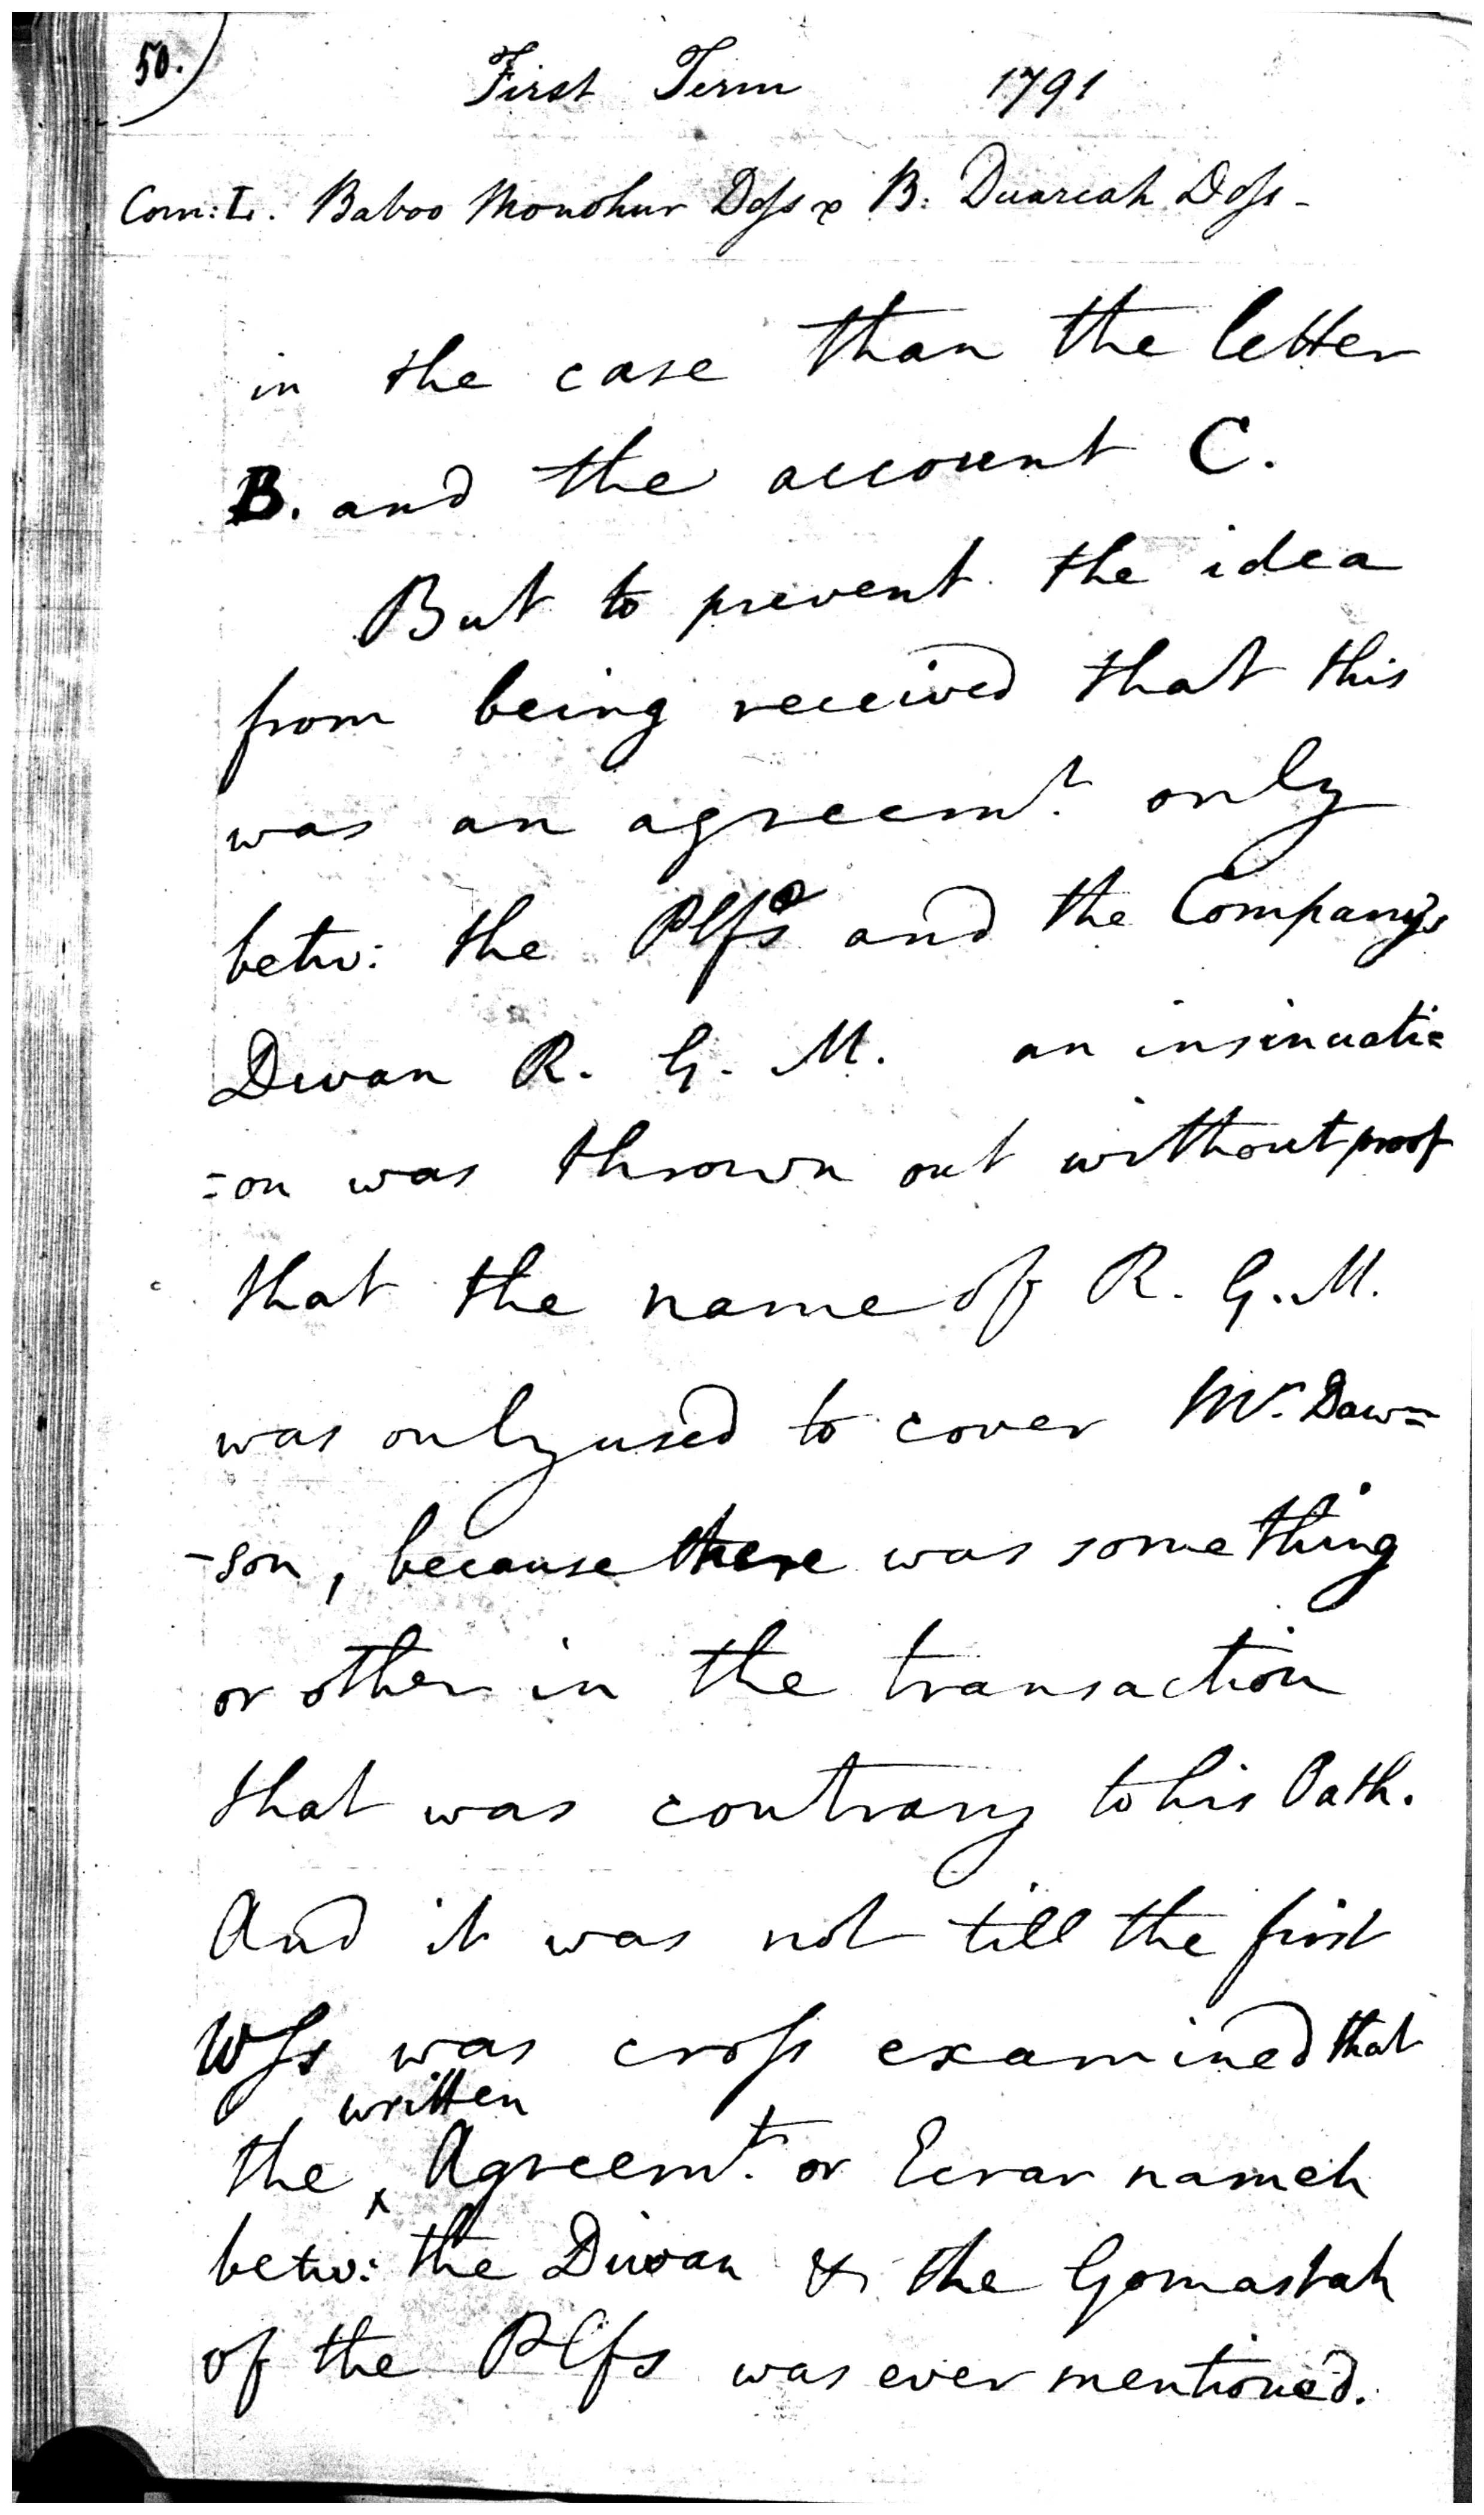 50.)
First Term 1791
Com: L. Baboo Monohur Doss & B: Duarcah Doss -
in the case than the letter
B. and the account C.
But to prevent the idea
from being received that this
was an agreemt. only
betw: the Plfs and the Company's
Divan R. G. M. an insinuati=
=on was thrown out without proof
that the name of R. G. M.
was only used to cover Mr. Daw=
-son, because there was something
or other in the transaction
that was contrary to his Oath.
And it was not till the first
Wss was cross examined that
written
the ^ Agreemt. or Ecrar nameh
betw: the Divan & the Gomastah
of the Plfs was ever mentioned.